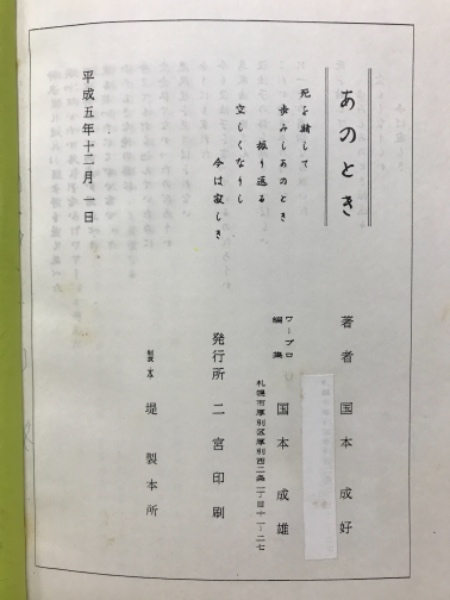 あのとき
死を賭して
歩みしあのとき
振り返る
空しくなりし
今は寂しき
平成五年十二月一日
著者 国本成好
ワープロ編集 国本成雄
札幌市厚別区厚別西二条一丁目十一-二七
発行所 二宮印刷
製本 堤製本所